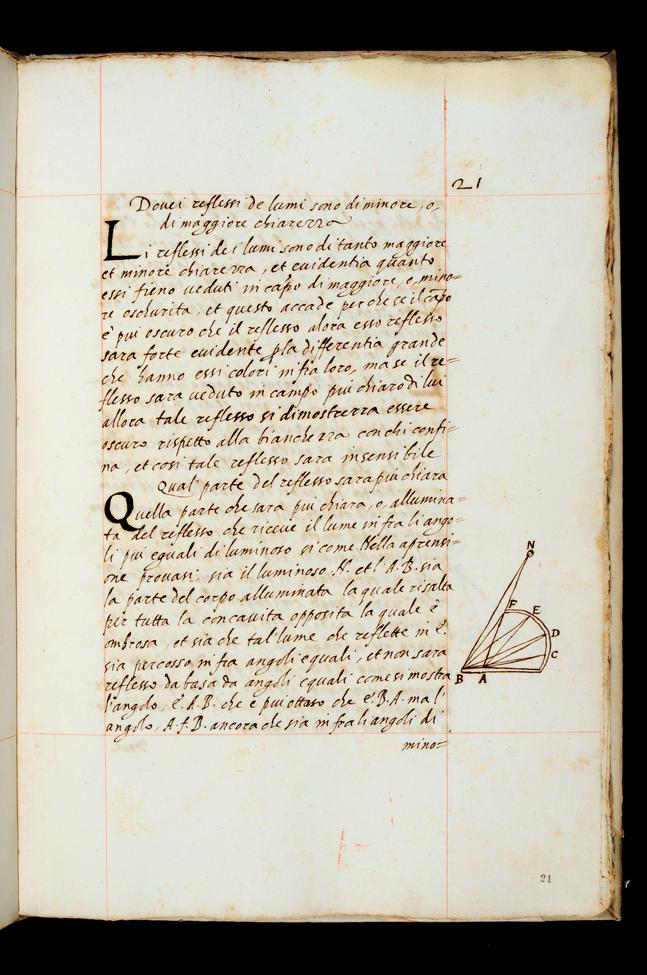 21
Doue i reflessi de lumi sono di minore, o,
di maggiore chiarezza
Li reflessi de i lumi sono di tanto maggiore
et minore chiarezza, et euidentia quanto
essi fieno ueduti in capo di maggiore, o, mino=
re oschurita, et questo accade perche se il capo
è piu oscuro che il reflesso alora esso reflesso
sara forte euidente p la differentia grande
che hanno essi colori infra loro, ma se il re=
flesso sara ueduto in campo piu chiaro di lui
allora tale reflesso si dimostrerra essere
oscuro rispetto alla bianchezza con chi confi=
na, et cosi tale reflesso sara insensibile
Qual' parte del reflesso sara piu chiara
Quella parte che sara piu chiara, o, allumina=
ta del reflesso che riceue il lume infra li ango=
li piu eguali di luminoso si come Nella aprensi=
one prouasi; sia il luminoso N. et l' A.B. sia
la parte del corpo alluminata la quale risalta
per tutta la concauita opposita la quale è
ombrosa, et sia che tal lume che reflette in E.
sia percosso infra angoli equali, et non sara
reflesso da basa da angoli equali come si mostra
l'angolo, E.A.B. che è piu ottuso che E.B.A. ma l'
angolo, A.f.B. ancora che sia infra li angoli di
mino=
N
F
E
D
C
B A
21